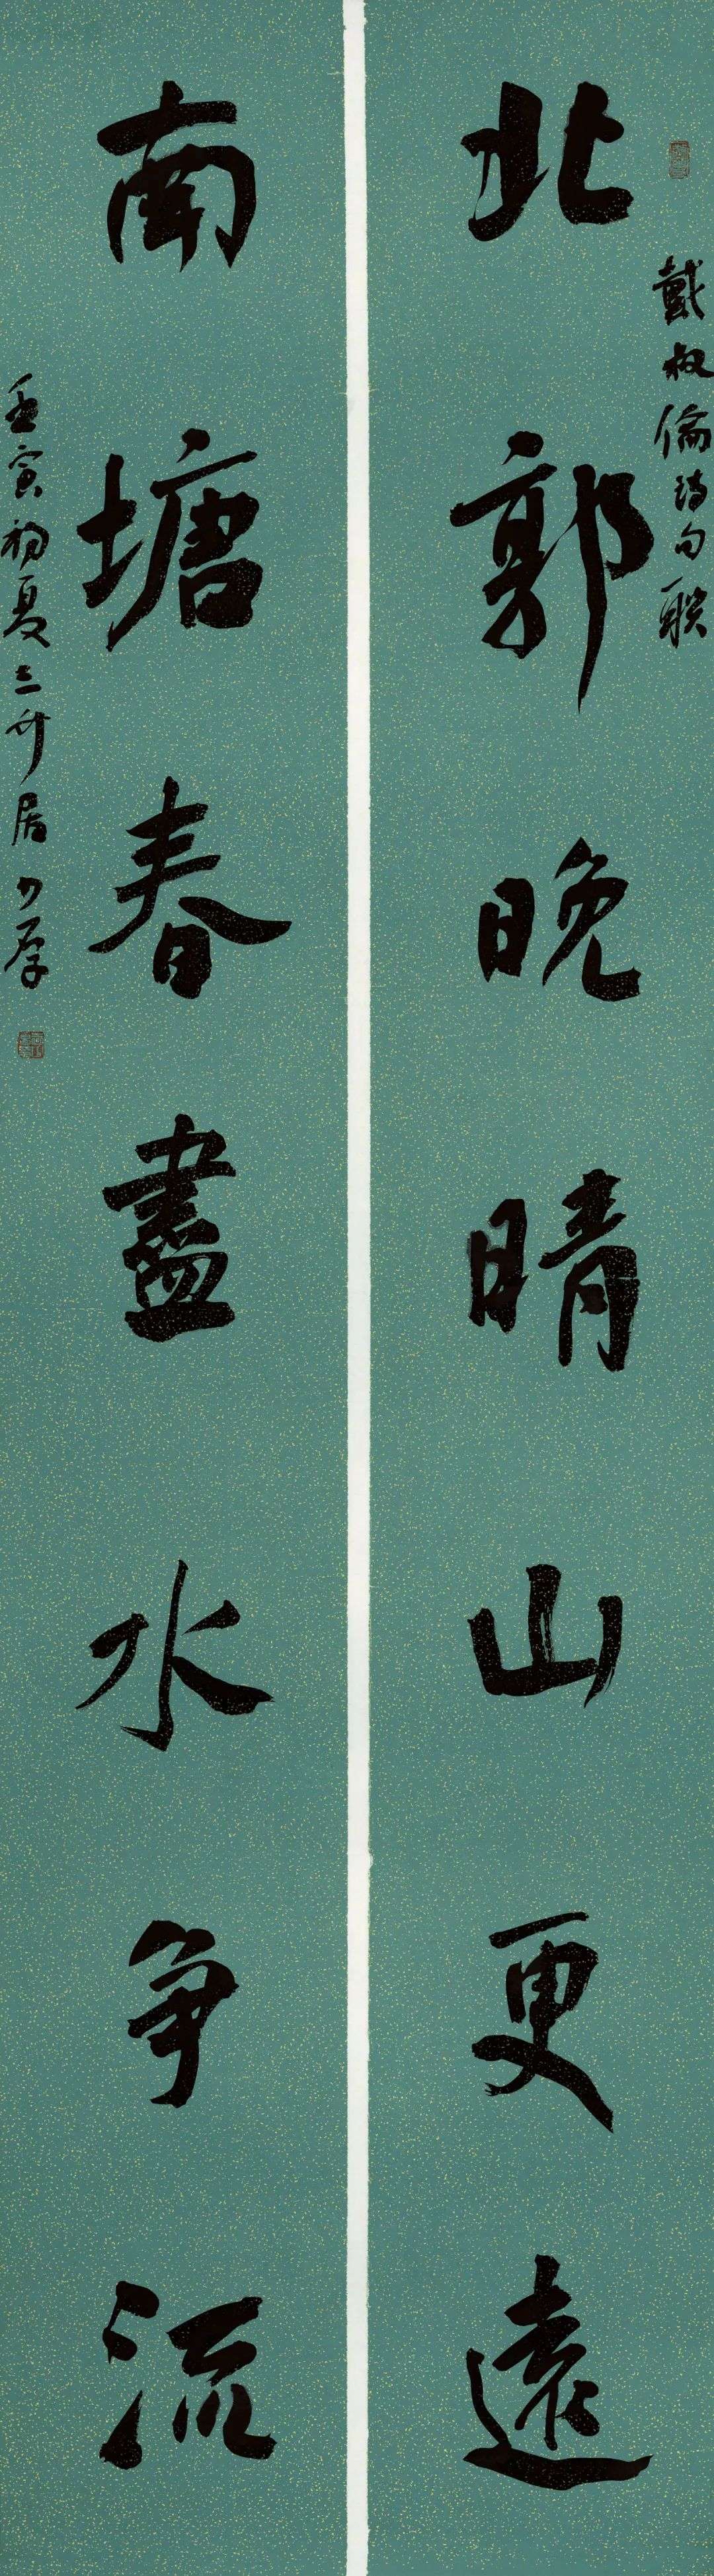 戴叔倫詩句聯
北郭晚晴山更遠
南塘春盡水争流
壬寅初夏三升居少厚